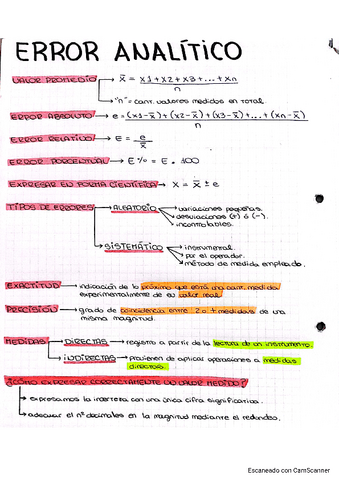 ERROR ANALÍTICO
VALOR PROMEDIO → x̄ = x1+x2+x3+...+xn / n
→ "n" = cant. valores medidos en total
ERROR ABSOLUTO → e = (x1-x̄)+(x2-x̄)+(x3-x̄)+...+(xn-x̄) / n
ERROR RELATIVO → E = e / x̄
ERROR PORCENTUAL → E% = E . 100
EXPRESAR EN FORMA CIENTÍFICA → X = x̄ ± e
TIPOS DE ERRORES → ALEATORIO → variaciones pequeñas.
→ desviaciones (+) ó (-).
→ incontrolables.
→ SISTEMÁTICO → instrumental.
→ por el operador.
→ método de medida empleado.
EXACTITUD → indicación de lo próximo que está una cant. medida
experimentalmente de su valor real.
PRECISIÓN → grado de coincidencia entre 2 o + medidas de una
misma magnitud.
MEDIDAS → DIRECTAS → registro a partir de la lectura de un instrumento.
→ INDIRECTAS → provienen de aplicar operaciones a medidas
directas.
¿CÓMO EXPRESAR CORRECTAMENTE UN VALOR MEDIDO?
→ expresamos la incerteza con una única cifra significativa.
→ adecuar el nº decimales en la magnitud mediante el redondeo.
Escaneado con CamScanner